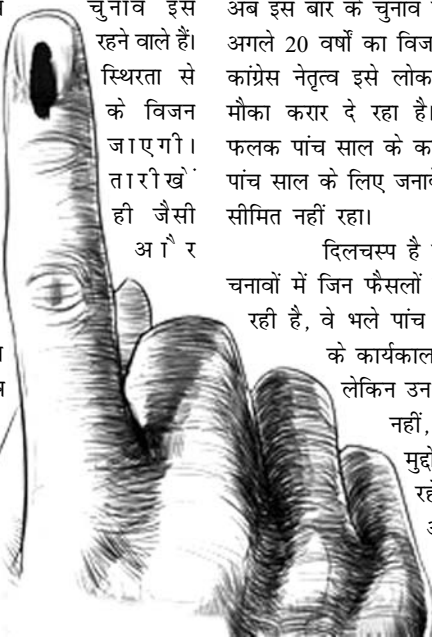 चुनाव इस
रहने वाले हैं।
स्थिरता से
के विजन
जाएगी।
तारीखें
ही जैसी
और
अब इस बार के चुनाव
अगले 20 वर्षों का विज
कांग्रेस नेतृत्व इसे लोक
मौका करार दे रहा है।
फलक पांच साल के का
पांच साल के लिए जनादे
सीमित नहीं रहा।
दिलचस्प है
चुनावों में जिन फैसलों
रही है, वे भले पांच
के कार्यकाल
लेकिन उन
नहीं,
मुद्दो
रहे